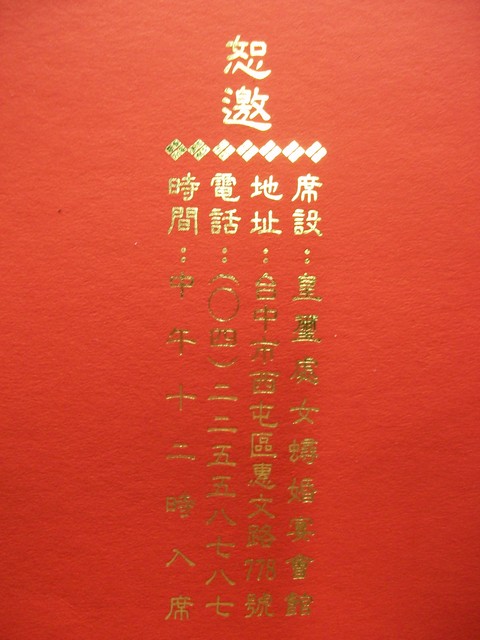 恕邀
席設：皇璽處女蟳婚宴會館
地址：台中市西屯區惠文路778號
電話：（〇四）二二五五八七八七
時間：中午十二時入席